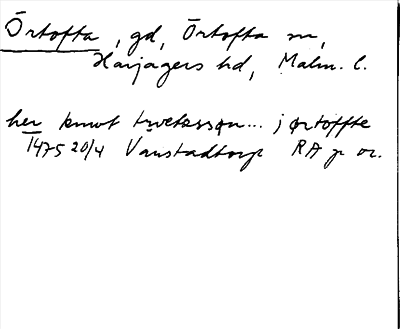 Örtofta, gd, Örtofta sn,
Harjagers hd, Malm. l.
her knwt trwetssøn... j ørtoffte
1475 20/4 Vanstadtorp RA p or.